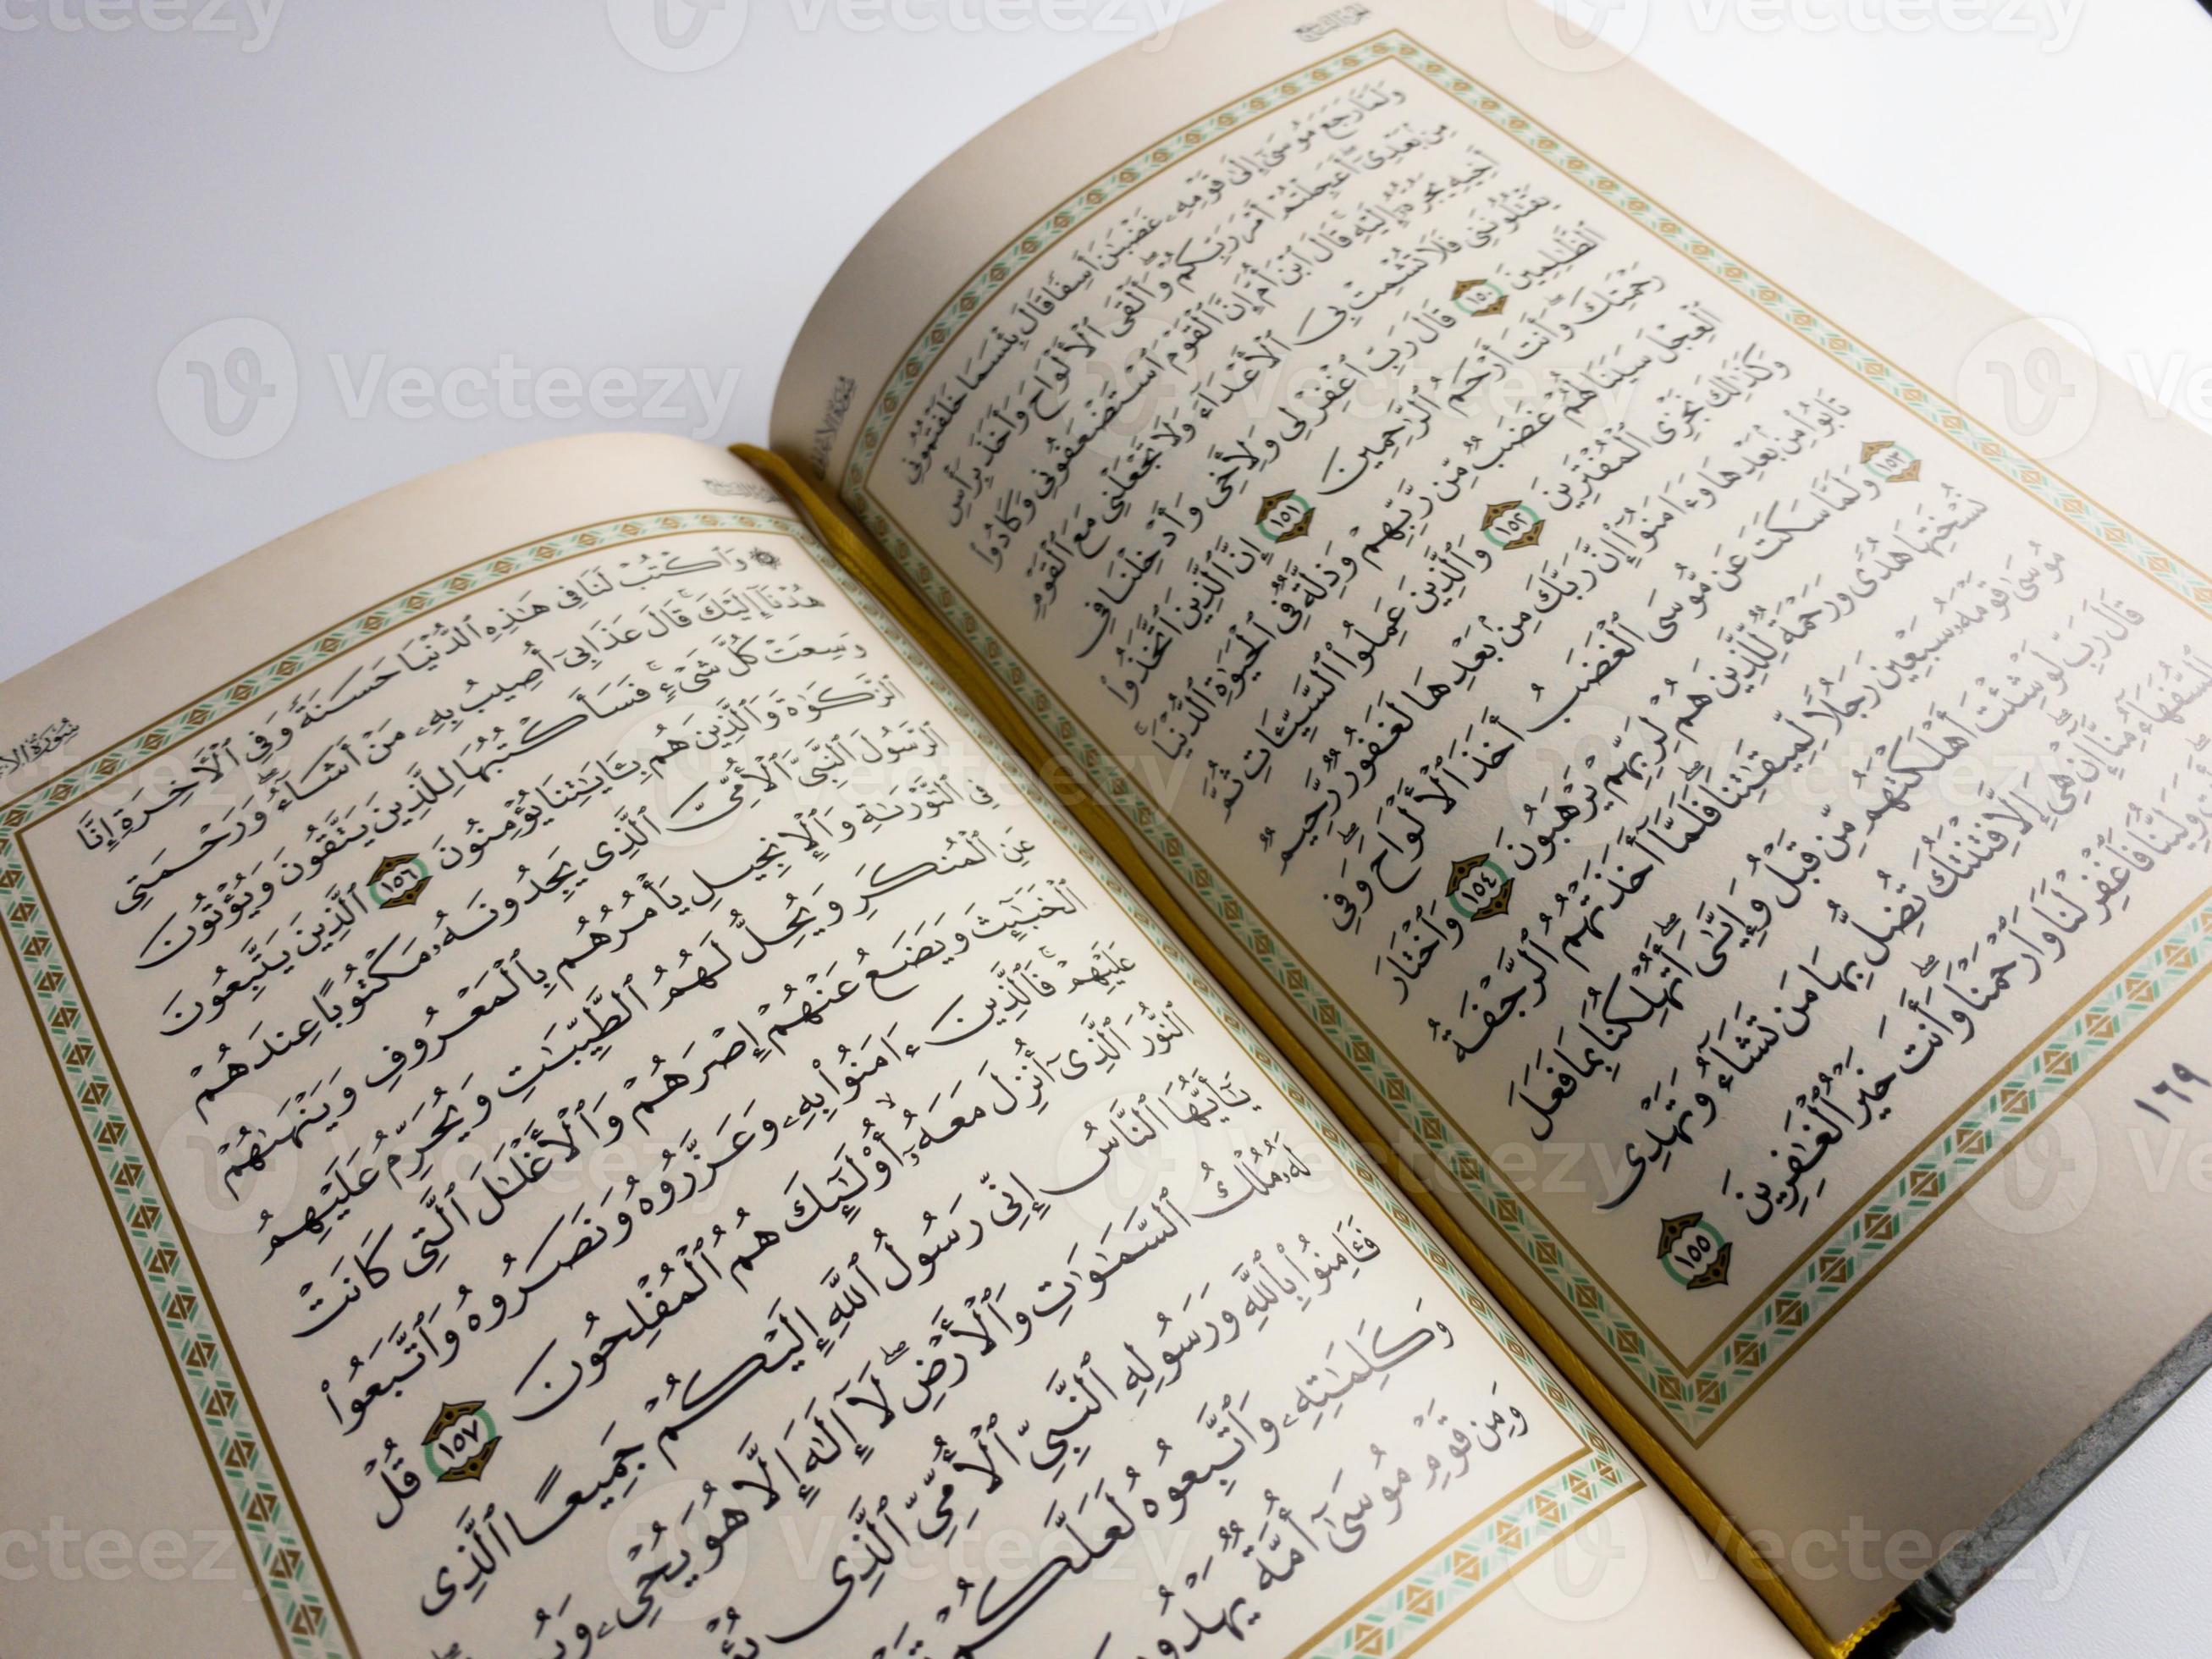 وَلَمَّا رَجَعَ مُوسَىٰٓ إِلَىٰ قَوْمِهِۦ غَضْبَٰنَ أَسِفًا قَالَ بِئْسَمَا خَلَفْتُمُونِى
مِنۢ بَعْدِىٓ ۖ أَعَجِلْتُمْ أَمْرَ رَبِّكُمْ ۖ وَأَلْقَى ٱلْأَلْوَاحَ وَأَخَذَ بِرَأْسِ
أَخِيهِ يَجُرُّهُۥٓ إِلَيْهِ ۚ قَالَ ٱبْنَ أُمَّ إِنَّ ٱلْقَوْمَ ٱسْتَضْعَفُونِى وَكَادُوا۟
يَقْتُلُونَنِى فَلَا تُشْمِتْ بِىَ ٱلْأَعْدَآءَ وَلَا تَجْعَلْنِى مَعَ ٱلْقَوْمِ
ٱلظَّٰلِمِينَ ١٥٠ قَالَ رَبِّ ٱغْفِرْ لِى وَلِأَخِى وَأَدْخِلْنَا فِى
رَحْمَتِكَ ۖ وَأَنتَ أَرْحَمُ ٱلرَّٰحِمِينَ ١٥١ إِنَّ ٱلَّذِينَ ٱتَّخَذُوا۟
ٱلْعِجْلَ سَيَنَالُهُمْ غَضَبٌ مِّن رَّبِّهِمْ وَذِلَّةٌ فِى ٱلْحَيَوٰةِ ٱلدُّنْيَا ۚ
وَكَذَٰلِكَ نَجْزِى ٱلْمُفْتَرِينَ ١٥٢ وَٱلَّذِينَ عَمِلُوا۟ ٱلسَّيِّـَٔاتِ ثُمَّ
تَابُوا۟ مِنۢ بَعْدِهَا وَءَامَنُوٓا۟ إِنَّ رَبَّكَ مِنۢ بَعْدِهَا لَغَفُورٌ رَّحِيمٌ
١٥٣ وَلَمَّا سَكَتَ عَن مُّوسَى ٱلْغَضَبُ أَخَذَ ٱلْأَلْوَاحَ ۖ وَفِى
نُسْخَتِهَا هُدًى وَرَحْمَةٌ لِّلَّذِينَ هُمْ لِرَبِّهِمْ يَرْهَبُونَ ١٥٤ وَٱخْتَارَ
مُوسَىٰ قَوْمَهُۥ سَبْعِينَ رَجُلًا لِّمِيقَٰتِنَا ۖ فَلَمَّآ أَخَذَتْهُمُ ٱلرَّجْفَةُ
قَالَ رَبِّ لَوْ شِئْتَ أَهْلَكْتَهُم مِّن قَبْلُ وَإِيَّٰىَ ۖ أَتُهْلِكُنَا بِمَا فَعَلَ
ٱلسُّفَهَآءُ مِنَّآ ۖ إِنْ هِىَ إِلَّا فِتْنَتُكَ تُضِلُّ بِهَا مَن تَشَآءُ وَتَهْدِى
وَلِيُّنَا فَٱغْفِرْ لَنَا وَٱرْحَمْنَا ۖ وَأَنتَ خَيْرُ ٱلْغَٰفِرِينَ ١٥٥
١٦٩
۞ وَٱكْتُبْ لَنَا فِى هَٰذِهِ ٱلدُّنْيَا حَسَنَةً وَفِى ٱلْـَٔاخِرَةِ إِنَّا
هُدْنَآ إِلَيْكَ ۚ قَالَ عَذَابِىٓ أُصِيبُ بِهِۦ مَنْ أَشَآءُ ۖ وَرَحْمَتِى
وَسِعَتْ كُلَّ شَىْءٍ ۚ فَسَأَكْتُبُهَا لِلَّذِينَ يَتَّقُونَ وَيُؤْتُونَ
ٱلزَّكَوٰةَ وَٱلَّذِينَ هُم بِـَٔايَٰتِنَا يُؤْمِنُونَ ١٥٦ ٱلَّذِينَ يَتَّبِعُونَ
ٱلرَّسُولَ ٱلنَّبِىَّ ٱلْأُمِّىَّ ٱلَّذِى يَجِدُونَهُۥ مَكْتُوبًا عِندَهُمْ
فِى ٱلتَّوْرَىٰةِ وَٱلْإِنجِيلِ يَأْمُرُهُم بِٱلْمَعْرُوفِ وَيَنْهَىٰهُمْ
عَنِ ٱلْمُنكَرِ وَيُحِلُّ لَهُمُ ٱلطَّيِّبَٰتِ وَيُحَرِّمُ عَلَيْهِمُ
ٱلْخَبَٰٓئِثَ وَيَضَعُ عَنْهُمْ إِصْرَهُمْ وَٱلْأَغْلَٰلَ ٱلَّتِى كَانَتْ
عَلَيْهِمْ ۚ فَٱلَّذِينَ ءَامَنُوا۟ بِهِۦ وَعَزَّرُوهُ وَنَصَرُوهُ وَٱتَّبَعُوا۟
ٱلنُّورَ ٱلَّذِىٓ أُنزِلَ مَعَهُۥٓ ۙ أُو۟لَٰٓئِكَ هُمُ ٱلْمُفْلِحُونَ ١٥٧ قُلْ
يَٰٓأَيُّهَا ٱلنَّاسُ إِنِّى رَسُولُ ٱللَّهِ إِلَيْكُمْ جَمِيعًا ٱلَّذِى
لَهُۥ مُلْكُ ٱلسَّمَٰوَٰتِ وَٱلْأَرْضِ ۖ لَآ إِلَٰهَ إِلَّا هُوَ يُحْىِۦ
فَـَٔامِنُوا۟ بِٱللَّهِ وَرَسُولِهِ ٱلنَّبِىِّ ٱلْأُمِّىِّ ٱلَّذِى
وَكَلِمَٰتِهِۦ وَٱتَّبِعُوهُ لَعَلَّكُمْ
وَمِن قَوْمِ مُوسَىٰٓ أُمَّةٌ يَهْدُونَ
Vecteezy